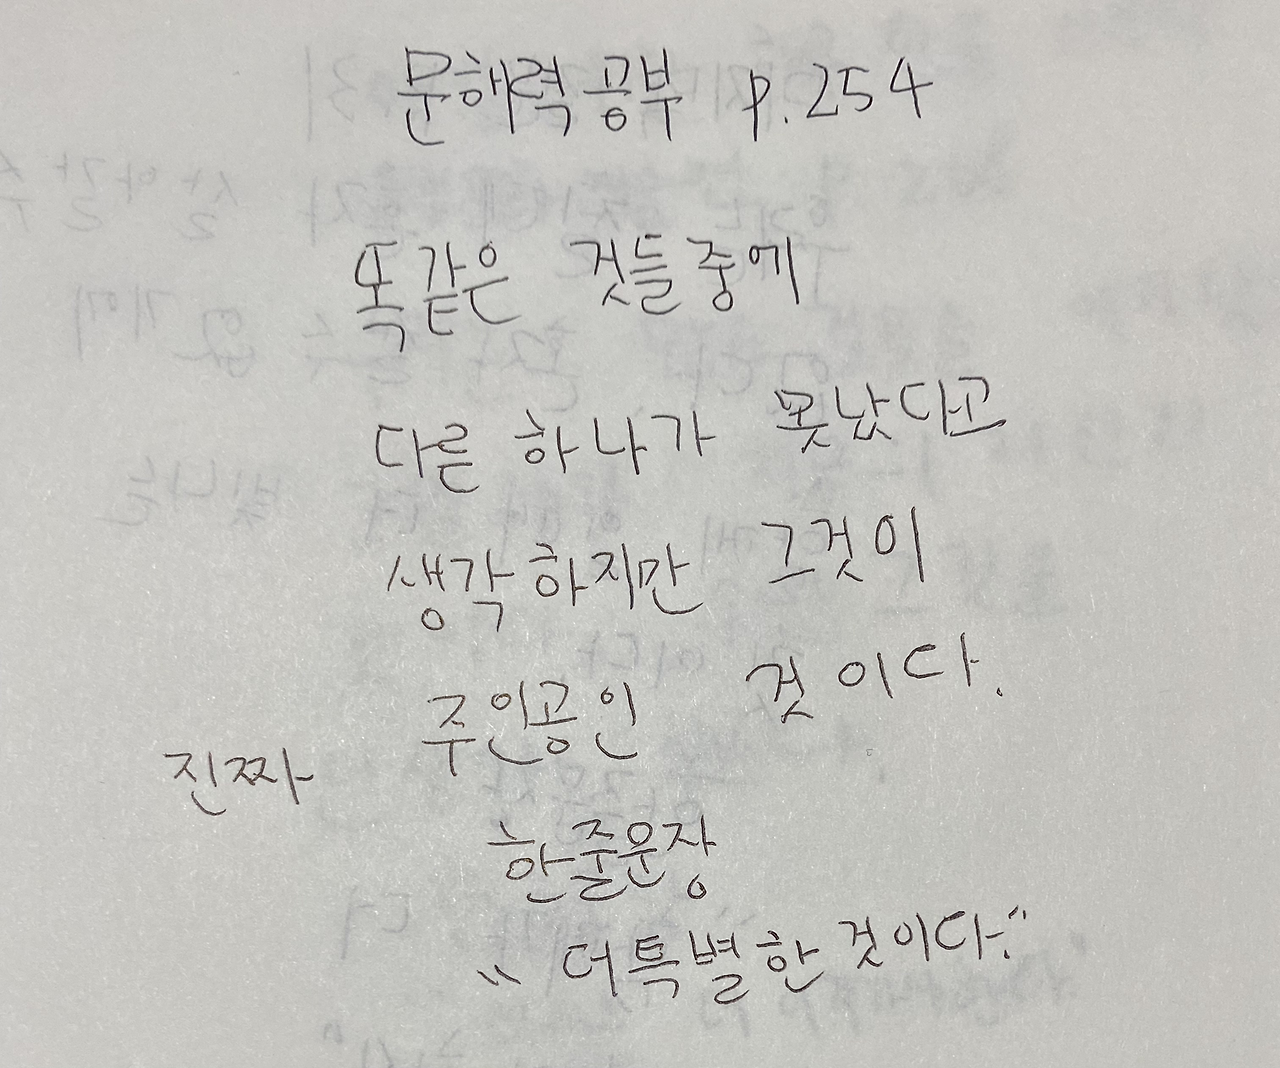 문해력 공부 p.254
똑같은 것들중에
다른 하나가 못났다고
생각하지만 그것이
주인공인 것이다.
진짜
한줄운장
"더특별한것이다."